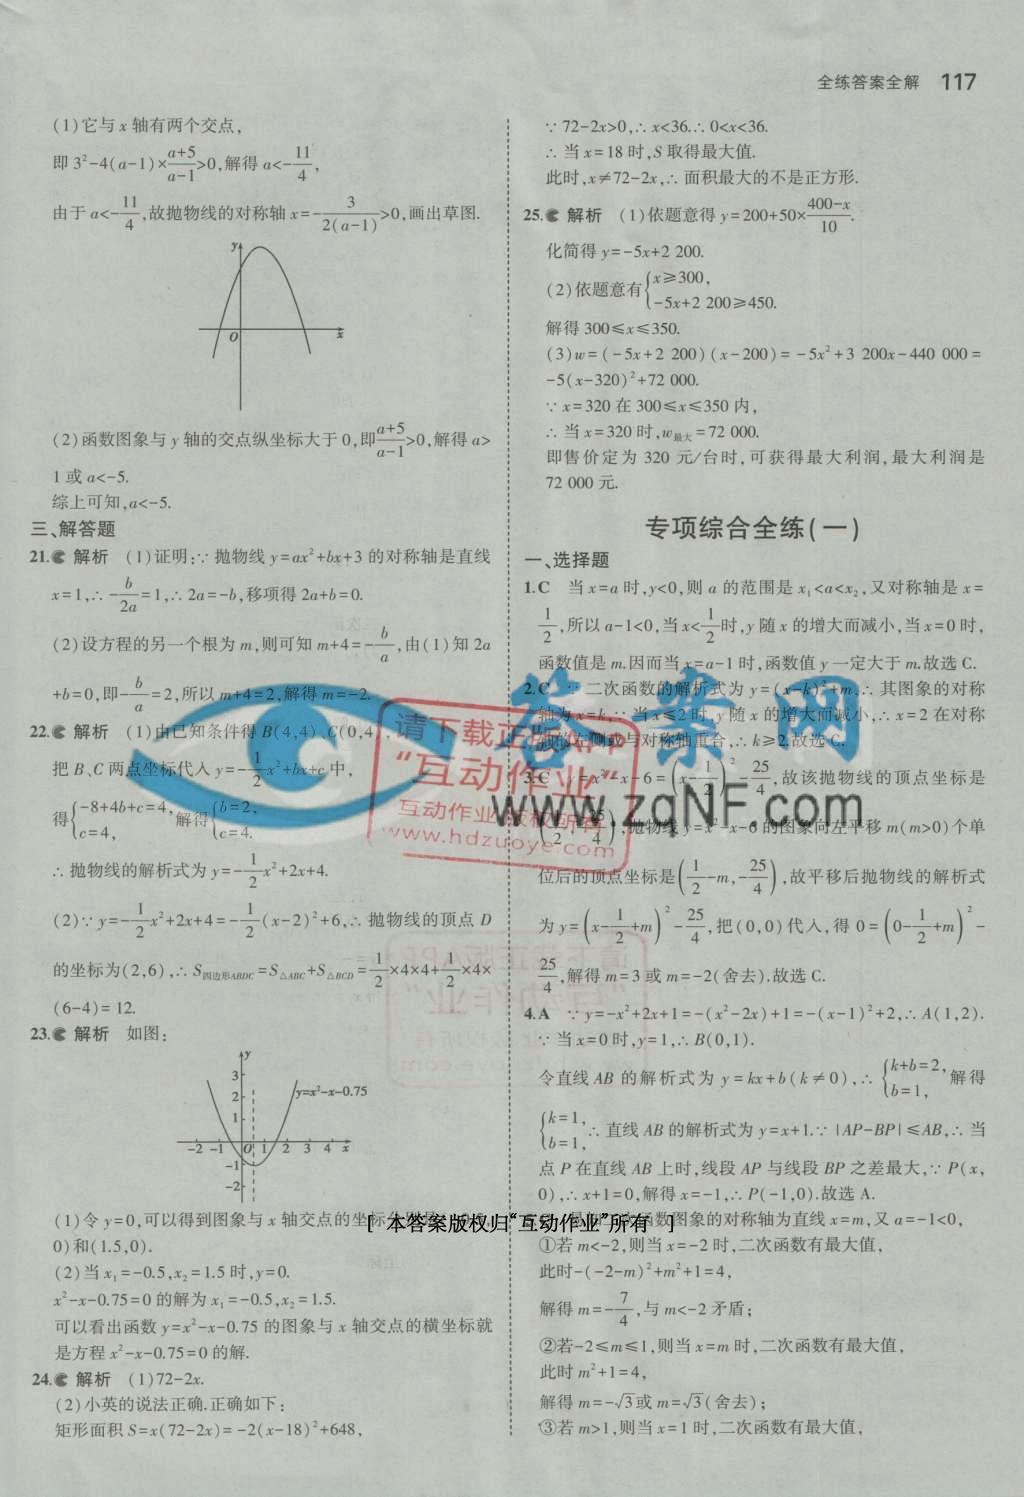 全练答案全解 117
(1)它与x轴有两个交点,
即3²-4(a-1)×(a+5)/(a-1)>0,解得a<-11/4,
由于a<-11/4,故抛物线的对称轴x=-3/(2(a-1))>0,画出草图.
y
O
x
(2)函数图象与y轴的交点纵坐标大于0,即(a+5)/(a-1)>0,解得a>
1或a<-5.
综上可知,a<-5.
三、解答题
21. 解析 (1)证明:∵抛物线y=ax²+bx+3的对称轴是直线
x=1,∴-b/(2a)=1,∴2a=-b,移项得2a+b=0.
(2)设方程的另一个根为m,则可知m+4=-b/a,由(1)知2a
+b=0,即-b/a=2,所以m+4=2,解得m=-2.
22. 解析 (1)由已知条件得B(4,4),C(0,4),
把B、C两点坐标代入y=-1/2x²+bx+c中,
得{-8+4b+c=4, c=4, 解得{b=2, c=4.
∴抛物线的解析式为y=-1/2x²+2x+4.
(2)∵y=-1/2x²+2x+4=-1/2(x-2)²+6,∴抛物线的顶点D
的坐标为(2,6),∴S四边形ABDC=S△ABC+S△BCD=1/2×4×4+1/2×4×
(6-4)=12.
23. 解析 如图:
y
3
2
1
-1
-2
-2 -1 O 1 2 3 4 x
y=x²-x-0.75
(1)令y=0,可以得到图象与x轴交点的坐标
0)和(1.5,0).
(2)当x₁=-0.5,x₂=1.5时,y=0.
x²-x-0.75=0的解为x₁=-0.5,x₂=1.5.
可以看出函数y=x²-x-0.75的图象与x轴交点的横坐标就
是方程x²-x-0.75=0的解.
24. 解析 (1)72-2x.
(2)小英的说法正确.正确如下:
矩形面积S=x(72-2x)=-2(x-18)²+648,
∵72-2x>0,∴x<36.∴0<x<36.
∴当x=18时,S取得最大值.
此时,x≠72-2x,∴面积最大的不是正方形.
25. 解析 (1)依题意得y=200+50×(400-x)/10.
化简得y=-5x+2 200.
(2)依题意有{x≥300, -5x+2 200≥450.
解得300≤x≤350.
(3)w=(-5x+2 200)(x-200)=-5x²+3 200x-440 000=
-5(x-320)²+72 000.
∵x=320在300≤x≤350内,
∴当x=320时,w最大=72 000.
即售价定为320元/台时,可获得最大利润,最大利润是
72 000元.
专项综合全练(一)
一、选择题
1.C 当x=a时,y<0,则a的范围是x₁<a<x₂,又对称轴是x=
1/2,所以a-1<0,当x<1/2时,y随x的增大而减小,当x=0时,
函数值是m.因而当x=a-1时,函数值y一定大于m.故选C.
2.C ∵二次函数的解析式为y=(x-k)²+m,∴其图象的对称
轴为x=k,∵当x≤2时,y随x的增大而减小,∴x=2在对称
轴的左侧或与对称轴重合,∴k≥2.故选C.
3.C y=x²-x-6=(x-1/2)²-25/4,故该抛物线的顶点坐标是
(1/2,-25/4),抛物线y=x²-x-6的图象向左平移m(m>0)个单
位后的顶点坐标是(1/2-m,-25/4),故平移后抛物线的解析式
为y=(x-1/2+m)²-25/4,把(0,0)代入,得0=(0-1/2+m)²-
25/4,解得m=3或m=-2(舍去).故选C.
4.A ∵y=-x²+2x+1=-(x²-2x)+1=-(x-1)²+2,∴A(1,2).
∵当x=0时,y=1,∴B(0,1).
令直线AB的解析式为y=kx+b(k≠0),∴{k+b=2, b=1, 解得
{k=1, b=1, ∴直线AB的解析式为y=x+1.∵|AP-BP|≤AB,∴当
点P在直线AB上时,线段AP与线段BP之差最大,∵P(x,
0),∴x+1=0,解得x=-1,∴P(-1,0).故选A.
二次函数图象的对称轴为直线x=m,又a=-1<0,
①若m<-2,则当x=-2时,二次函数有最大值,
此时-(-2-m)²+m²+1=4,
解得m=-7/4,与m<-2矛盾;
②若-2≤m≤1,则当x=m时,二次函数有最大值,
此时m²+1=4,
解得m=-√3或m=√3(舍去);
③若m>1,则当x=1时,二次函数有最大值,
答案网
www.zqNF.com
请下载正版
“互动作业”
互动作业 版权所有
www.hdzuoye.com
[ 本答案版权归“互动作业”所有 ]